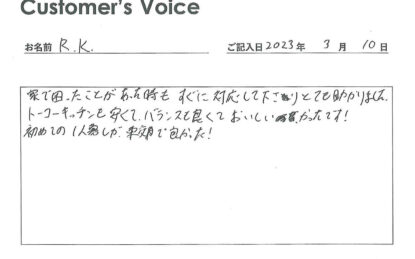 Customer's Voice
お名前 R.K. ご記入日 2023年 3月 10日
家で困ったことがあった時も すぐに対応して下さりとても助かりました。
トーコーキッチンも安くて、バランスも良くて おいしい かったです!
初めての1人暮しが 東郊で良かった!